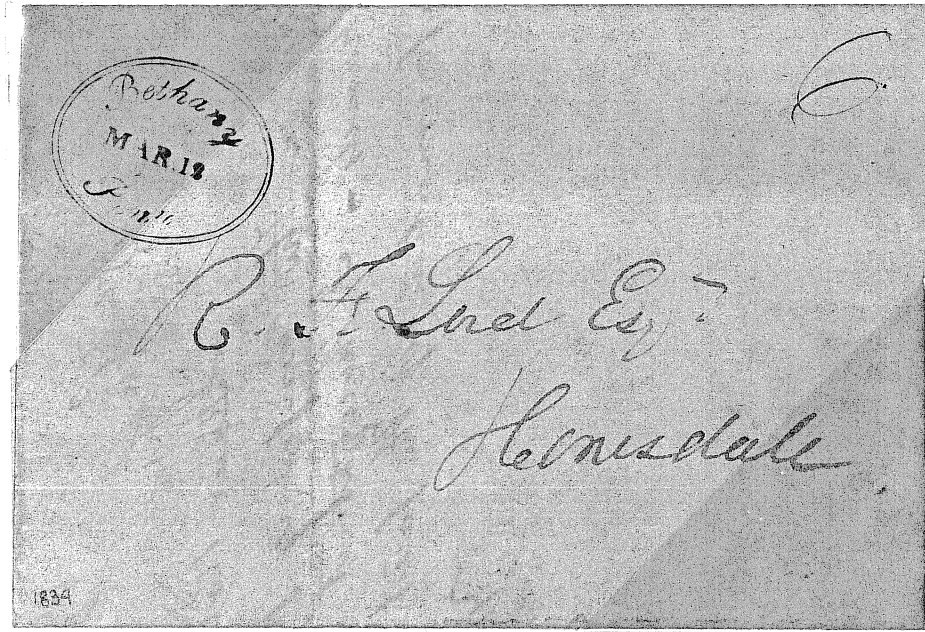 Bethany
MAR.12
Penn.
6
R. F. Lord Esqr
Honesdale
1834